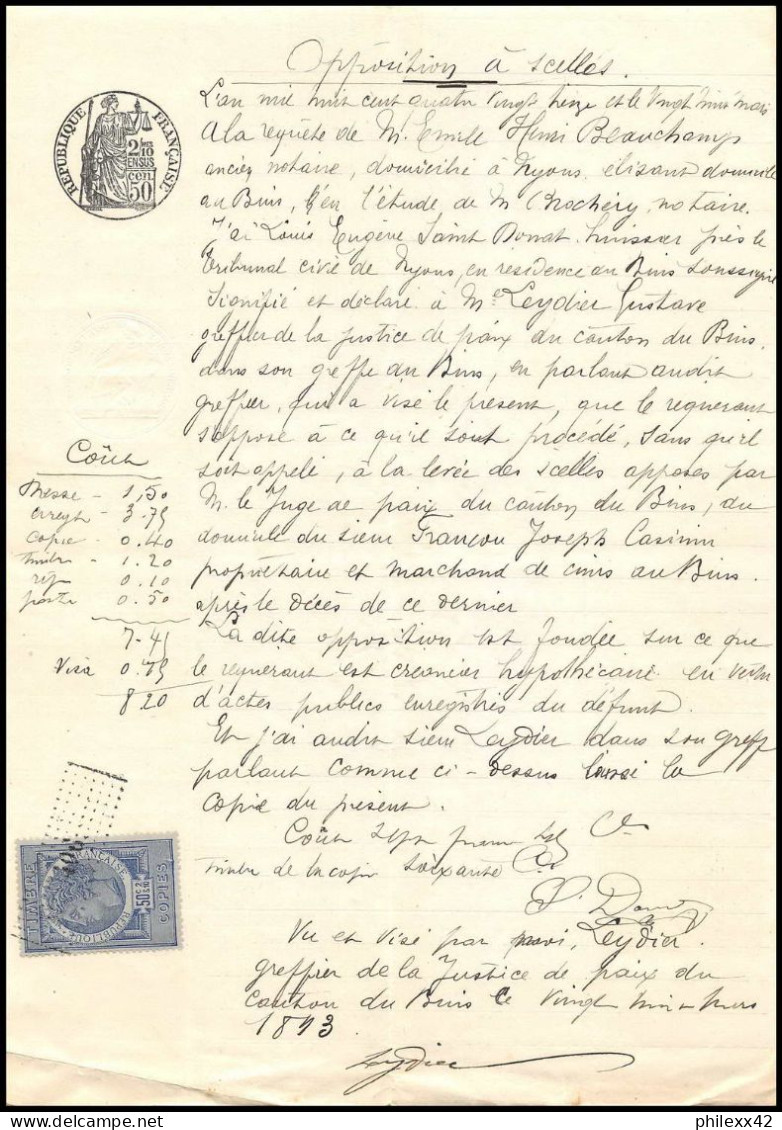 Opposition à scellés.
L'an mil huit cent quatre vingt treize et le vingt huit mars
A la requête de M. Emile Henri Beauchamp
ancien notaire, domicilié à Nyons, élisant domicile
au Buis, en l'étude de Me Rochery, notaire.
J'ai Louis Eugène Saint Donat, huissier près le
tribunal civil de Nyons, en résidence au Buis soussigné
Signifié et déclaré à Me Leydier Gustave
greffier de la justice de paix du canton du Buis,
dans son greffe au Buis, en parlant audit
greffier, qui a visé le présent, que le requérant
s'oppose à ce qu'il soit procédé, sans qu'il
soit appelé, à la levée des scellés apposés par
M. le Juge de paix du canton du Buis, au
domicile du sieur Francou Joseph Casimir
propriétaire et marchand de cuirs au Buis.
après le décès de ce dernier
La dite opposition est fondée sur ce que
le requérant est créancier hypothécaire en vertu
d'actes publics enregistrés du défunt.
Et j'ai audit sieur Leydier dans son greffe
parlant comme ci-dessus laissé la
copie du présent.
Coût sept francs
timbre de la copie soixante Ces
St Donat
Vu et visé par moi, Leydier
greffier de la Justice de paix du
canton du Buis le vingt huit mars
1893
Leydier
RÉPUBLIQUE FRANÇAISE
2/10
EN SUS
50 cen.
Coût
1,50
enregt - 3.75
copie - 0.40
timbre - 1.20
rép 0.10
poste 0.50
7-45
Visa 0.75
8 20
TIMBRE
COPIES
RÉPUBLIQUE FRANÇAISE
50c 2/10
philexx42